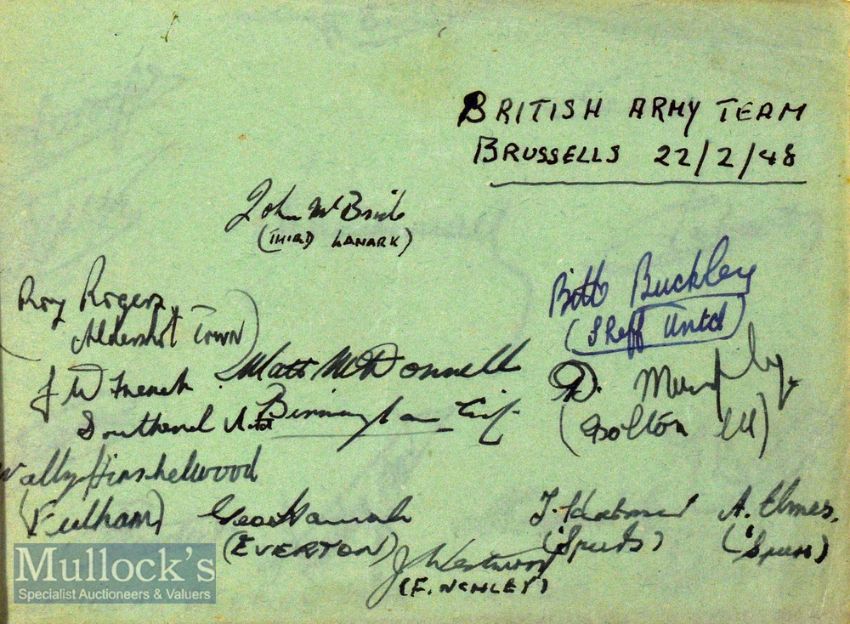 BRITISH ARMY TEAM
BRUSSELLS 22/2/48
John McBride
(THIRD LANARK)
Roy Rogers
(Aldershot Town)
Buckley
(Sheff Untd)
J W French
Southend Utd
Matt McDonnell
Birmingham City
D. Murphy
(Bolton W)
Wally Hinshelwood
(Fulham)
Geo Hannah
(EVERTON)
J Westwood
(FINCHLEY)
J.
(Spurs)
A. Elmes.
(Spurs)
Mullock's
Specialist Auctioneers & Valuers